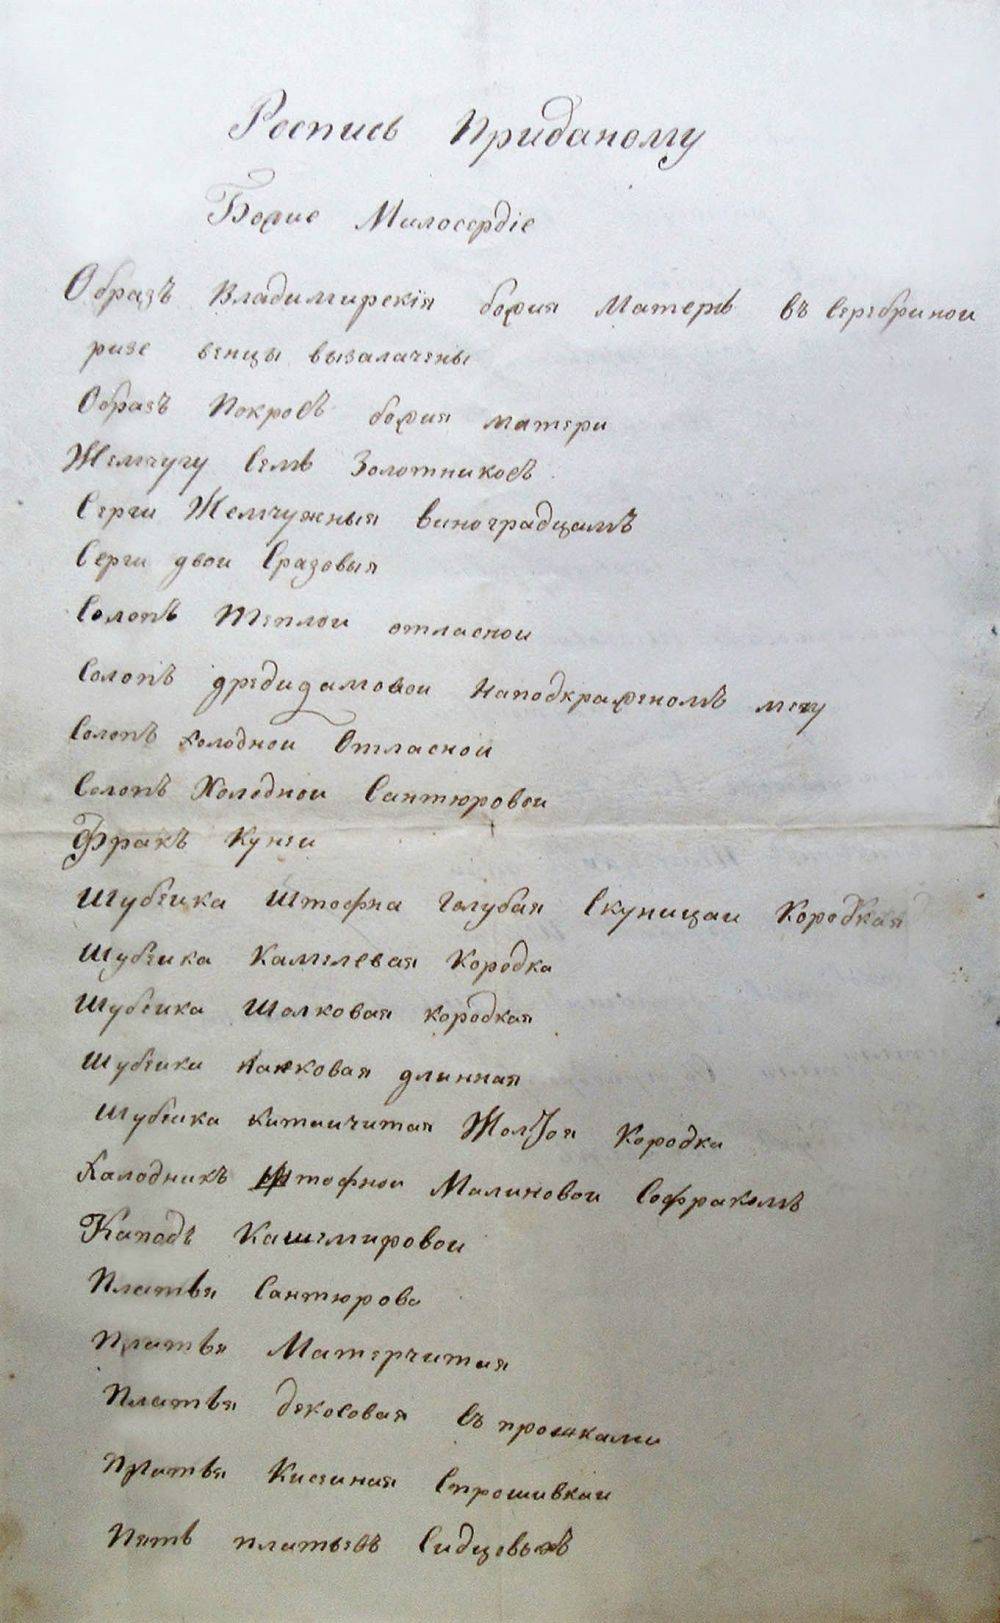 Роспись Приданому
Божие Милосердіе
Образъ Владимирскія божия Матерь въ Серебриной
ризе венцы вызалачены
Образъ Покровъ божия матери
Жемчугу Семь Золотниковъ
Серги Жемчужныя виноградцамъ
Серги двои Стразовыя
Солопъ Теплои отласнои
Солопъ дредидамовои Наподкраженомъ меху
Солопъ холоднои Отласнои
Солопъ Холоднои Сантюровои
Фракъ Кунеи
Шубеика Штофна Голубая Скуницаи Кородкая
Шубеика Камлевая Кородка
Шубеика Шолковая кородкая
Шубеика Нанковая длинная
Шубеика китаичитая Жолтоя Кородка
Халодникъ Штофнои Малиновои Софракомъ
Кападъ Кашемировои
Платья Сантюрова
Платья Матерчитая
Платья декосовая съ прошками
Платья Кисеиная Спрошивкаи
Пять платьевъ Сидцевыхъ